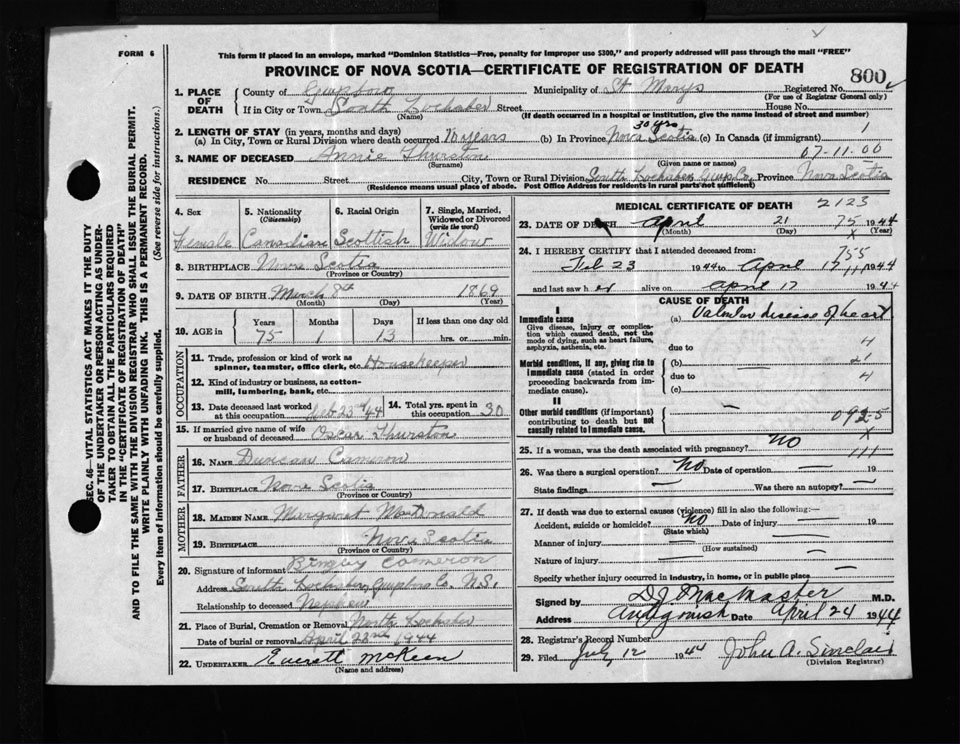 FORM 6
This form if placed in an envelope, marked "Dominion Statistics—Free, penalty for improper use $300," and properly addressed will pass through the mail "FREE"
PROVINCE OF NOVA SCOTIA—CERTIFICATE OF REGISTRATION OF DEATH
800
SEC. 46—VITAL STATISTICS ACT MAKES IT THE DUTY
OF THE UNDERTAKER OR PERSON ACTING AS UNDER-
TAKER TO OBTAIN ALL THE PARTICULARS REQUIRED
IN THE "CERTIFICATE OF REGISTRATION OF DEATH"
AND TO FILE THE SAME WITH THE DIVISION REGISTRAR WHO SHALL ISSUE THE BURIAL PERMIT.
WRITE PLAINLY WITH UNFADING INK. THIS IS A PERMANENT RECORD.
Every item of information should be carefully supplied. (See reverse side for instructions.)
1. PLACE OF DEATH
County of Guysboro Municipality of St Marys Registered No.
(For use of Registrar General only)
If in City or Town South Lochaber Street House No.
(Name) (If death occurred in a hospital or institution, give the name instead of street and number)
2. LENGTH OF STAY (in years, months and days)
(a) In City, Town or Rural Division where death occurred 70 years (b) In Province Nova Scotia (c) In Canada (if immigrant)
3. NAME OF DECEASED Annie Thurston 07-11-00
(Surname) (Given name or names)
RESIDENCE No. Street City, Town or Rural Division South Lochaber Guys Co. Province Nova Scotia
(Residence means usual place of abode. Post Office Address for residents in rural parts not sufficient)
4. Sex
Female
5. Nationality (Citizenship)
Canadian
6. Racial Origin
Scottish
7. Single, Married, Widowed or Divorced (write the word)
Widow
8. BIRTHPLACE Nova Scotia
(Province or Country)
9. DATE OF BIRTH March 8th 1869
(Month) (Day) (Year)
10. AGE in Years Months Days If less than one day old
75 1 13 hrs. or min.
OCCUPATION
11. Trade, profession or kind of work as spinner, teamster, office clerk, etc. Housekeeper
12. Kind of industry or business, as cotton-mill, lumbering, bank, etc.
13. Date deceased last worked at this occupation Feb 23rd/44
14. Total yrs. spent in this occupation 30
15. If married give name of wife or husband of deceased Oscar Thurston
FATHER
16. NAME Duncan Cameron
17. BIRTHPLACE Nova Scotia
(Province or Country)
MOTHER
18. MAIDEN NAME Margaret MacDonald
19. BIRTHPLACE Nova Scotia
(Province or Country)
20. Signature of informant Cameron
Address South Lochaber, Guysboro Co. N.S.
Relationship to deceased Nephew
21. Place of Burial, Cremation or Removal North Lochaber
Date of burial or removal April 23rd 1944
22. UNDERTAKER Everett McKeen
(Name and address)
MEDICAL CERTIFICATE OF DEATH 2123
23. DATE OF DEATH April 21 75 1944
(Month) (Day) (Year)
24. I HEREBY CERTIFY that I attended deceased from: 755
Feb 23 1944 to April 17 1944
and last saw her alive on April 17 1944
CAUSE OF DEATH
I
Immediate cause
Give disease, injury or complication which caused death, not the mode of dying, such as heart failure, asphyxia, asthenia, etc.
(a) Valvular disease of heart
due to 4
Morbid conditions, if any, giving rise to immediate cause (stated in order proceeding backwards from immediate cause).
(b) 21
due to 4
(c)
II
Other morbid conditions (if important) contributing to death but not causally related to immediate cause.
092-5
25. If a woman, was the death associated with pregnancy? No
26. Was there a surgical operation? No Date of operation — 19
State findings — Was there an autopsy? —
27. If death was due to external causes (violence) fill in also the following:—
Accident, suicide or homicide? No Date of injury — 19
(State which)
Manner of injury —
(How sustained)
Nature of injury —
Specify whether injury occurred in industry, in home, or in public place
Signed by D J MacMaster M.D.
Address Antigonish Date April 24 1944
28. Registrar's Record Number
29. Filed July 12 1944 John A. Sinclair
(Division Registrar)